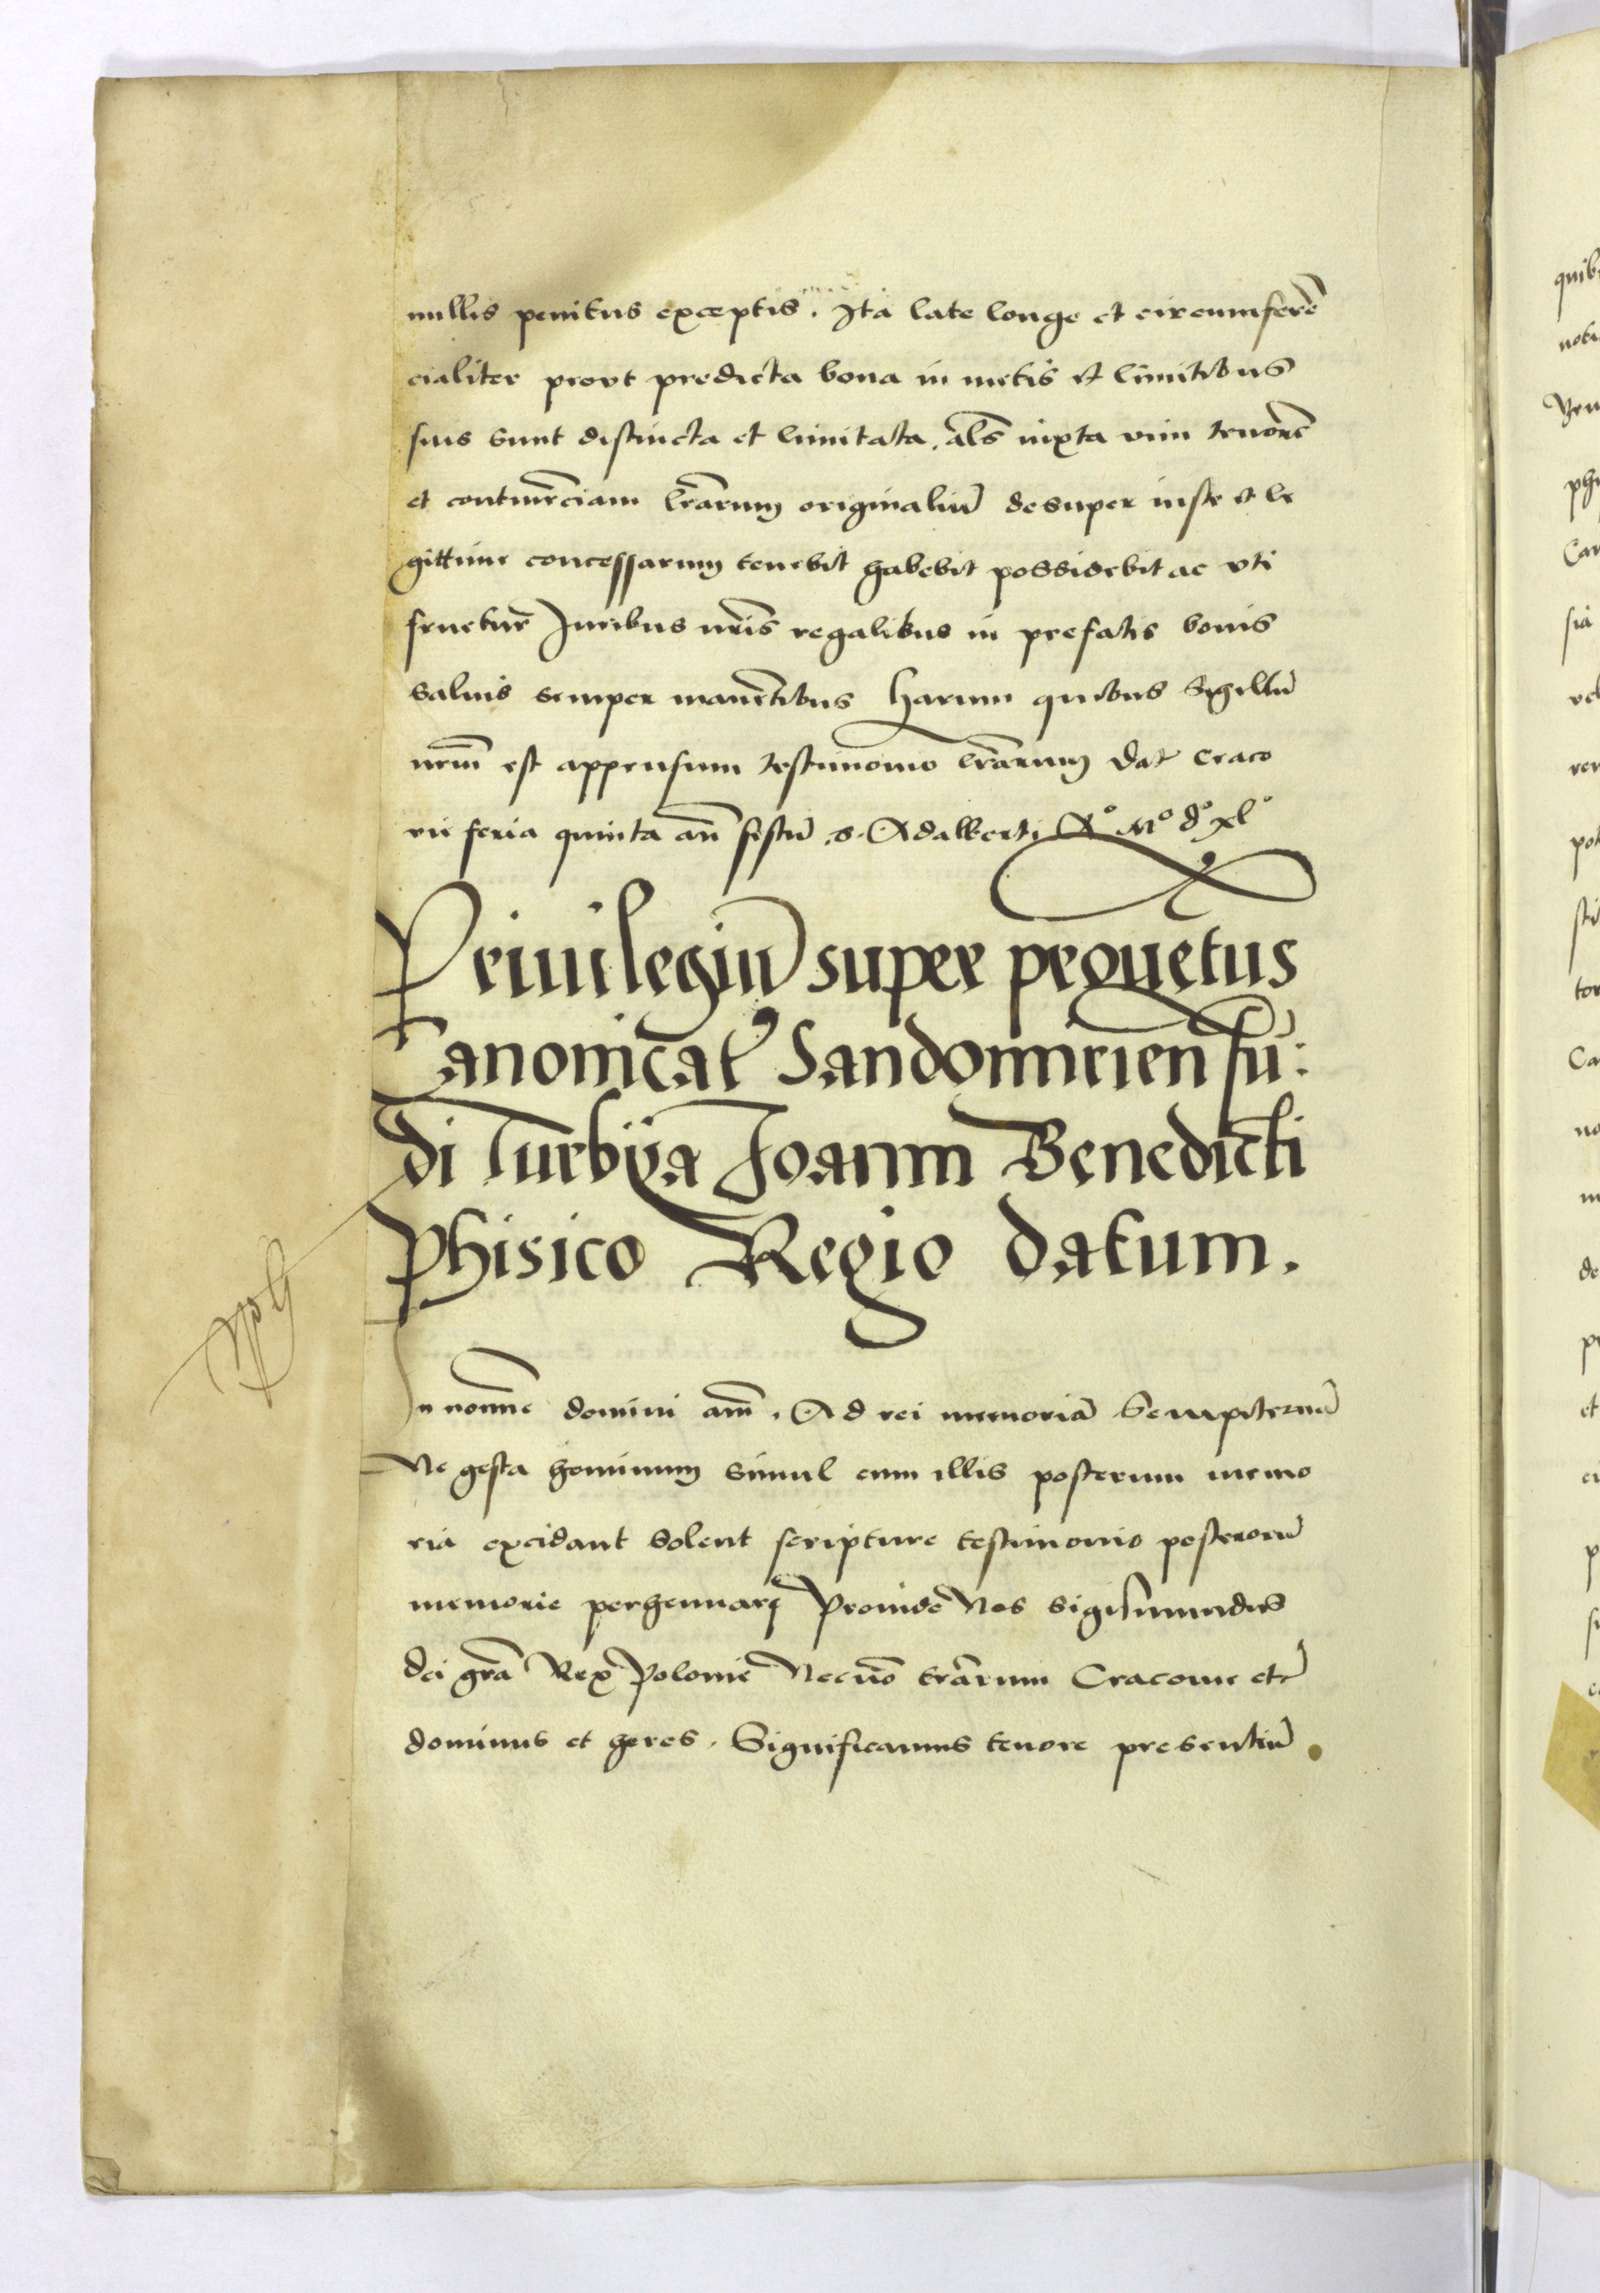 nullis penitus exceptis. Ita late longe et circumferē
cialiter prout predicta bona in metis et limitibus
suis sunt distincta et limitata. als̄ iuxta vim tenorē
et continēciam lrarum originaliū desuper iuste et le
gittime concessarum tenebit habebit possidebit ac vti
fruetur Iuribus nris regalibus in prefatis bonis
saluis semper manētibus harum quibus Sigillū
nrm̄ est appensum testimonio lrarum Dat Craco
vie feria quinta an̄ festū .s. Adalberti Aº Mº dº xlº
Priuilegiū super prouētus
Canonicat9 Sandomirien fū:
di Turbya Joanni Benedicti
Phisico Regio datum.
In nomine domini am̄. Ad rei memoriā Sempiternā
Ne gesta hominum simul cum illis posterum memo
ria excidant solent scripture testimonio posterorū
memorie perhennari Proinde Nos Sigismundus
dei gra Rex Polonie Necnō trarum Cracovie etc
dominus et heres. Significamus tenore presentiū